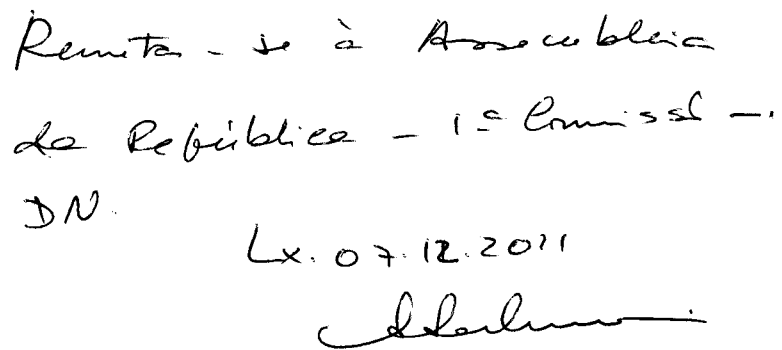 Remeta-se à Assembleia
da República - 1ª Comissão -.
DN.
Lx. 07.12.2011